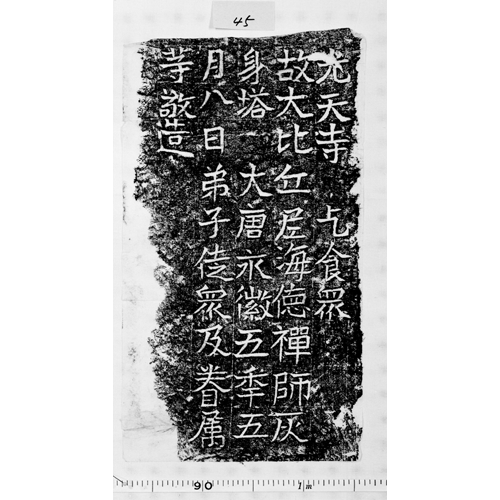 45
光天寺 乞食衆
故大比丘尼海德禪師灰
身塔一 大唐永徽五年五
月八日弟子徒衆及眷属
等敬造
90 1m